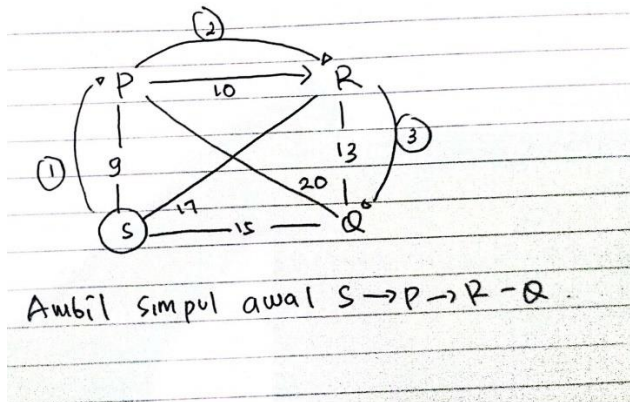 2
P 10 R
1 9 13 3
17 20
S 15 Q
Ambil simpul awal S → P → R - Q